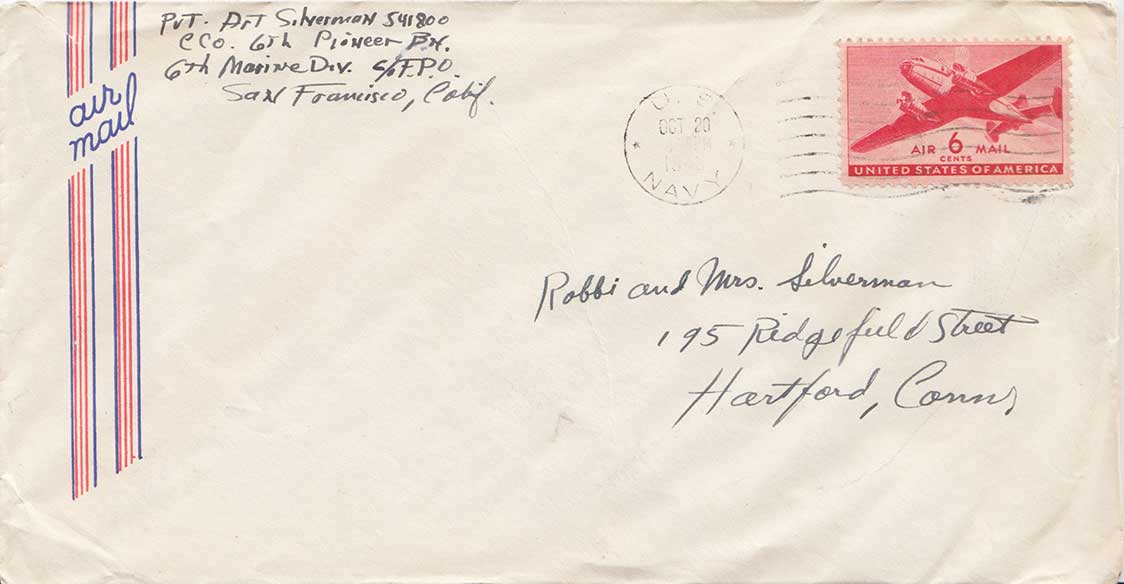 Pvt. Art Silverman 541800
C Co. 6th Pioneer Bn.
6th Marine Div. c/o F.P.O
San Francisco, Calif.
air
mail
U. S.
OCT 20
PM
NAVY
AIR 6 MAIL
CENTS
UNITED STATES OF AMERICA
Rabbi and Mrs. Silverman
195 Ridgefield Street
Hartford, Conn.